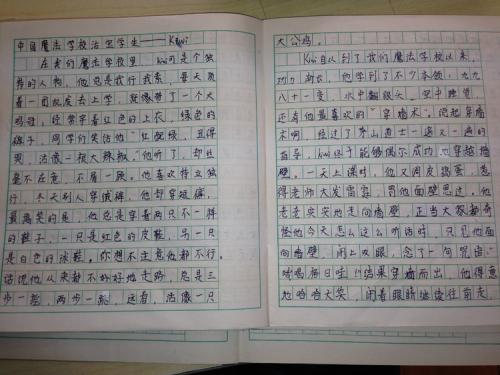 中国魔法学校活宝学生——Kiwi
在我们魔法学校里，kiwi可是个独
特的人物，他总是我行我素，每天顶
着一团乱发去上学，就像带了一个大
鸡窝，经常穿着红色的上衣，绿色的
裤子，同学们笑话他“红配绿，丑得
哭，活像一根大辣椒。”他听了，却丝
毫不在意，不屑一顾。他喜欢特立独
行，冬天别人穿绒裤，他却穿短裤，
最搞笑的是，他总是穿着两只不一样
的鞋子，一只是红色的皮鞋，另一只
是白色的凉鞋。你想不注意他都不行。
话说他从来都不好好地走路，总是三
步一摇，两步一跳，远看，活像一只
大公鸡。
Kiwi自从到了我们魔法学校以来，
功力渐长，他学到了不少本领，九九
八十一变、水中翻跟头、空中睡觉，
还有他最喜欢的“穿墙术”。说起穿墙
术啊，经过了茅山道士一遍又一遍的
指导，kiwi终于能够偶尔成功地穿越墙
壁。一天上课时，他又调皮捣蛋，惹
得老师大发雷霆，罚他面壁思过。他
老老实实地走向墙壁，正当大家都奇
怪他今天怎么这么听话时，只见他面
向墙壁，闭上双眼，念了一句咒语：
结果穿墙而出，他得意
地哈哈大笑，闭着眼睛继续往前走，